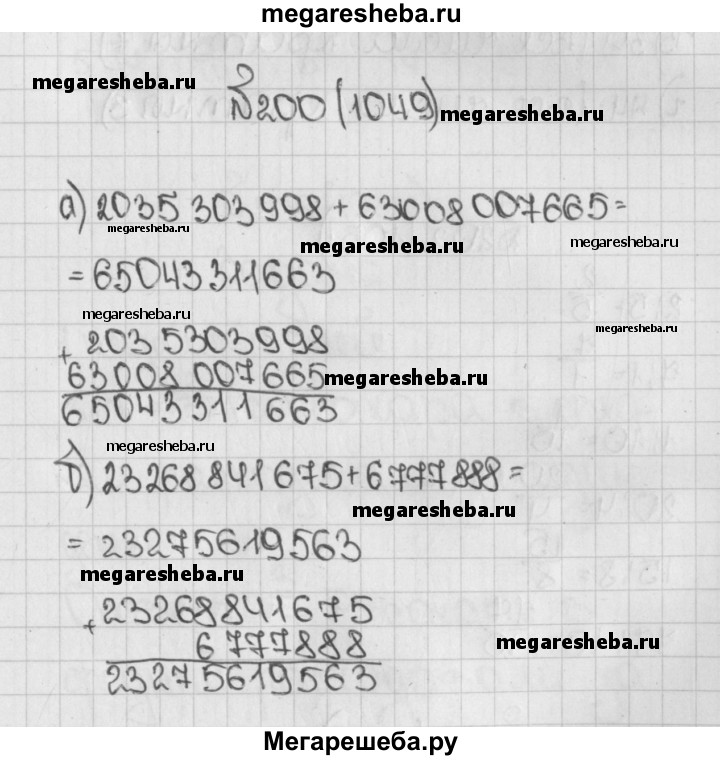 megaresheba.ru
megaresheba.ru
№200 (1049)
megaresheba.ru
а) 2035 303 998 + 63008 007 665 =
megaresheba.ru
megaresheba.ru
megaresheba.ru
= 65043 311 663
megaresheba.ru
megaresheba.ru
+ 203 5303 998
63 008 007 665
megaresheba.ru
65043 311 663
megaresheba.ru
б) 23268 841 675 + 6777 888 =
megaresheba.ru
= 23275619563
megaresheba.ru
+ 23268841675
6 777888
megaresheba.ru
2327 5619563
Мегарешеба.ру